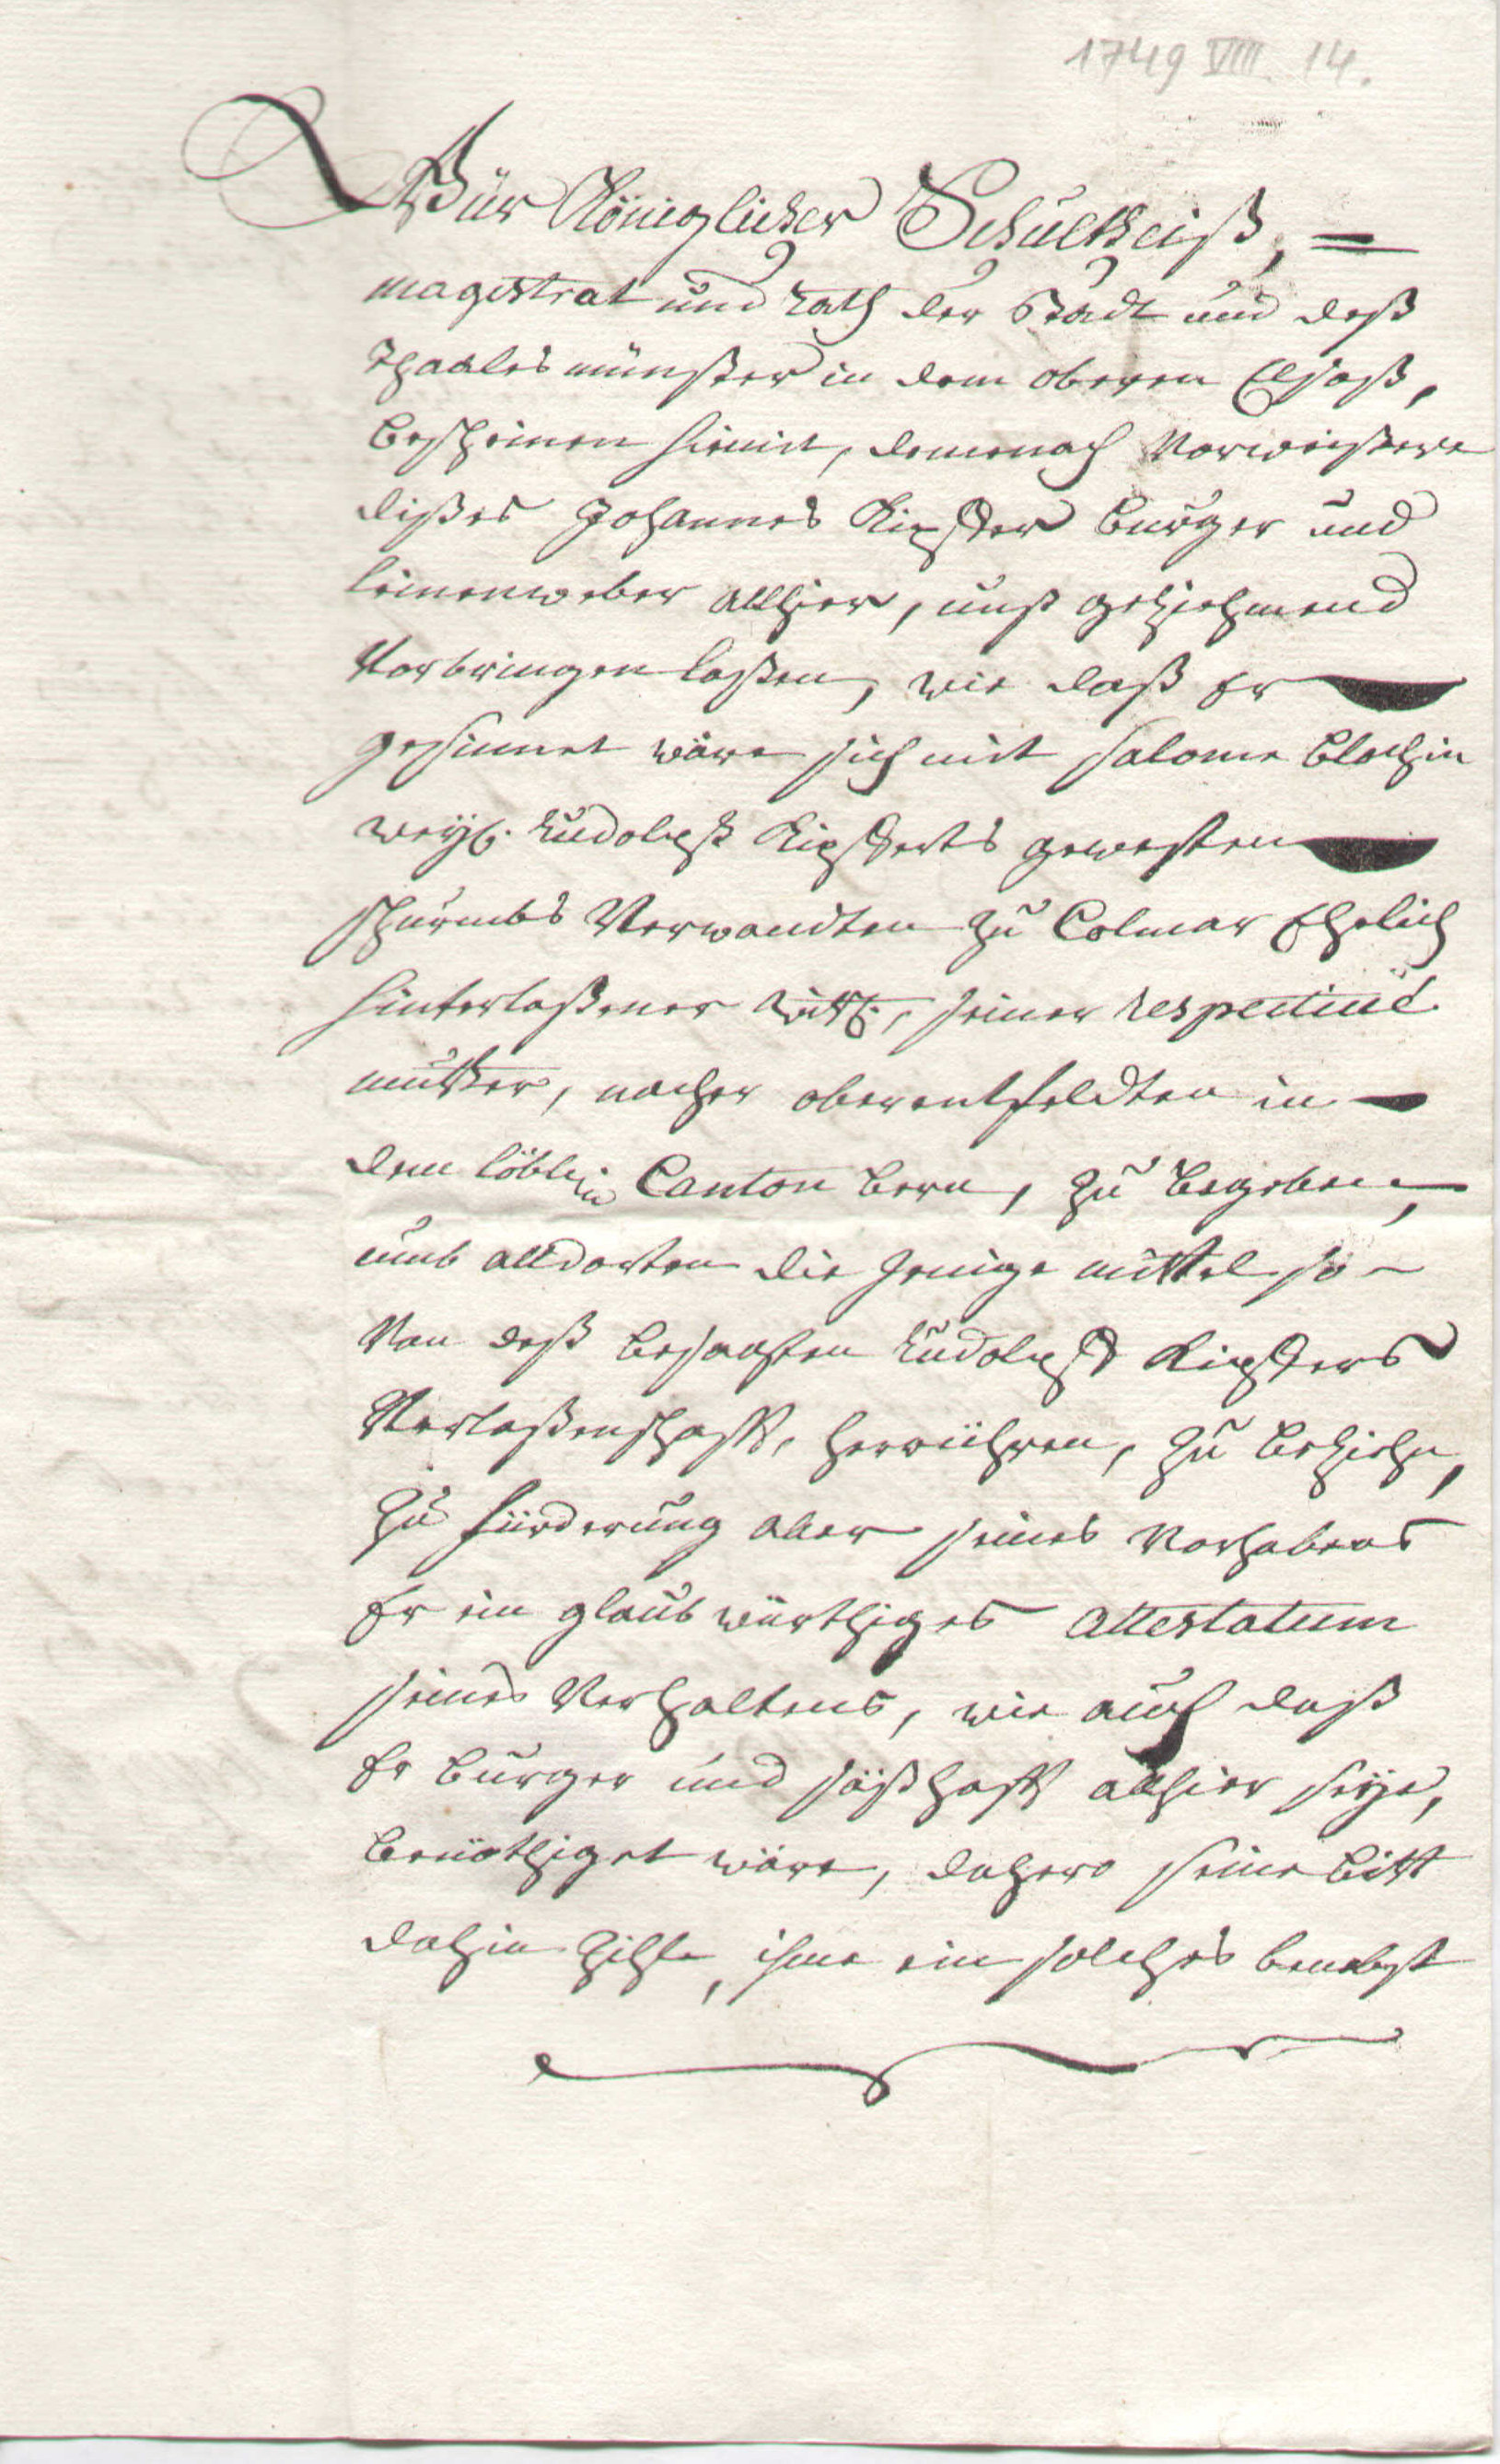 1749 VIII. 14.
Wür Königlicher Schultheiß,
magistrat und Rath der Stadt und deß
Thaales münster in dem oberen Elsaß,
bescheinen hiemit, demnach Vorweißere
dißes Johannes Burger und
leinenweber allhier, unß geziehmend
Vorbringen laßen, wie daß er
gesinnet wäre sich mit Salome Blochin
weyl. Rudolph gewesten
Verwandten zu Colmar Ehelich
hinterlaßener Wittib, seiner respective
mutter, nacher oberentfeldten in
dem löblen Canton bern, zu begeben,
umb alldorten die jenige mittel so
Von deß besagten Rudolph
Verlaßenschafft, herrühren, zu beziehen,
zu fürderung aber seines Vorhabens
Er ein glaubwürthiges attestatum
seines Verhaltens, wie auch daß
Er burger und säßhafft allhier seye,
benöthiget wäre, dahero seine bitt
dahin zihle, ihme ein solches benebst